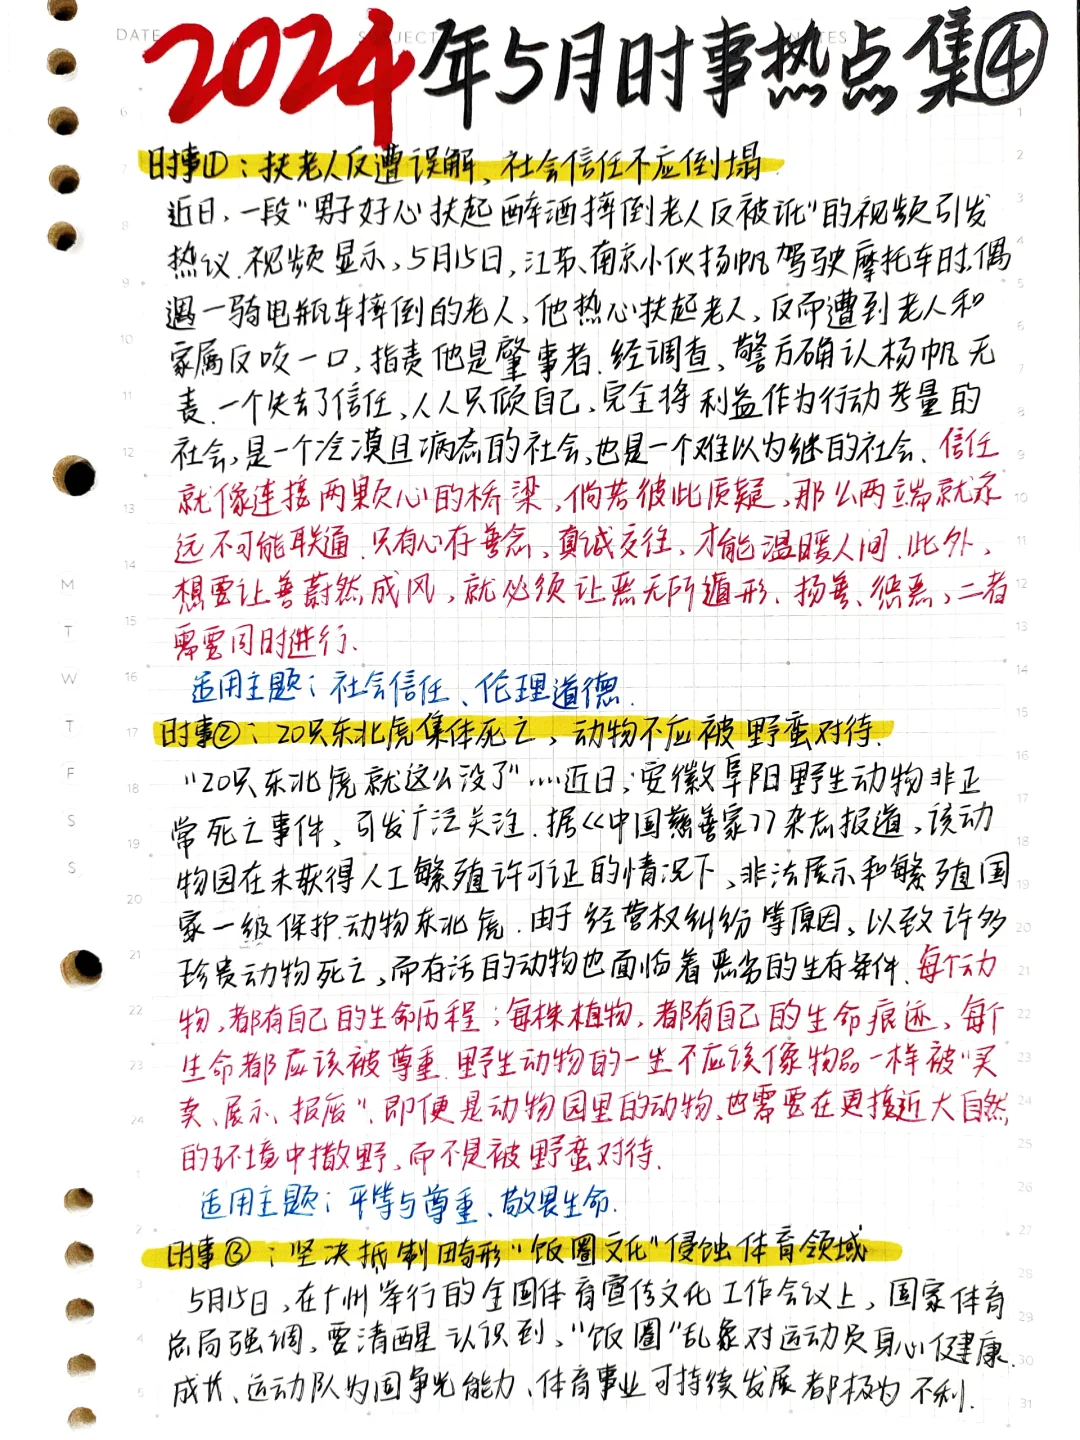 DATE SUBJECT NOTES
2024年5月时事热点集④
时事①：扶老人反遭误解、社会信任不应倒塌
近日，一段“男子好心扶起醉酒摔倒老人反被讹”的视频引发
热议.视频显示，5月15日，江苏、南京小伙杨帆驾驶摩托车时，偶
遇一骑电瓶车摔倒的老人，他热心扶起老人，反而遭到老人和
家属反咬一口，指责他是肇事者.经调查，警方确认杨帆无
责.一个失去了信任，人人只顾自己，完全将利益作为行动考量的
社会，是一个冷漠且病态的社会，也是一个难以为继的社会.信任
就像连接两颗心的桥梁，倘若彼此质疑，那么两端就永
远不可能联通.只有心存善念，真诚交往，才能温暖人间.此外，
想要让善蔚然成风，就必须让恶无所遁形.扬善、惩恶，二者
需要同时进行.
适用主题：社会信任、伦理道德.
时事②：20只东北虎集体死亡，动物不应被野蛮对待.
“20只东北虎就这么没了”……近日，安徽阜阳野生动物非正
常死亡事件，引发广泛关注.据《中国慈善家》杂志报道，该动
物园在未获得人工繁殖许可证的情况下，非法展示和繁殖国
家一级保护动物东北虎.由于经营权纠纷等原因，以致许多
珍贵动物死亡，而存活的动物也面临着恶劣的生存条件.每个动
物，都有自己的生命历程；每株植物，都有自己的生命痕迹，每个
生命都应该被尊重.野生动物的一生不应该像物品一样被“买
卖、展示、报废”.即便是动物园里的动物，也需要在更接近大自然
的环境中撒野，而不是被野蛮对待.
适用主题：平等与尊重、敬畏生命.
时事③：坚决抵制畸形“饭圈文化”侵蚀体育领域
5月15日，在广州举行的全国体育宣传文化工作会议上，国家体育
总局强调，要清醒认识到，“饭圈”乱象对运动员身心健康.
成长、运动队为国争光能力、体育事业可持续发展都极为不利.